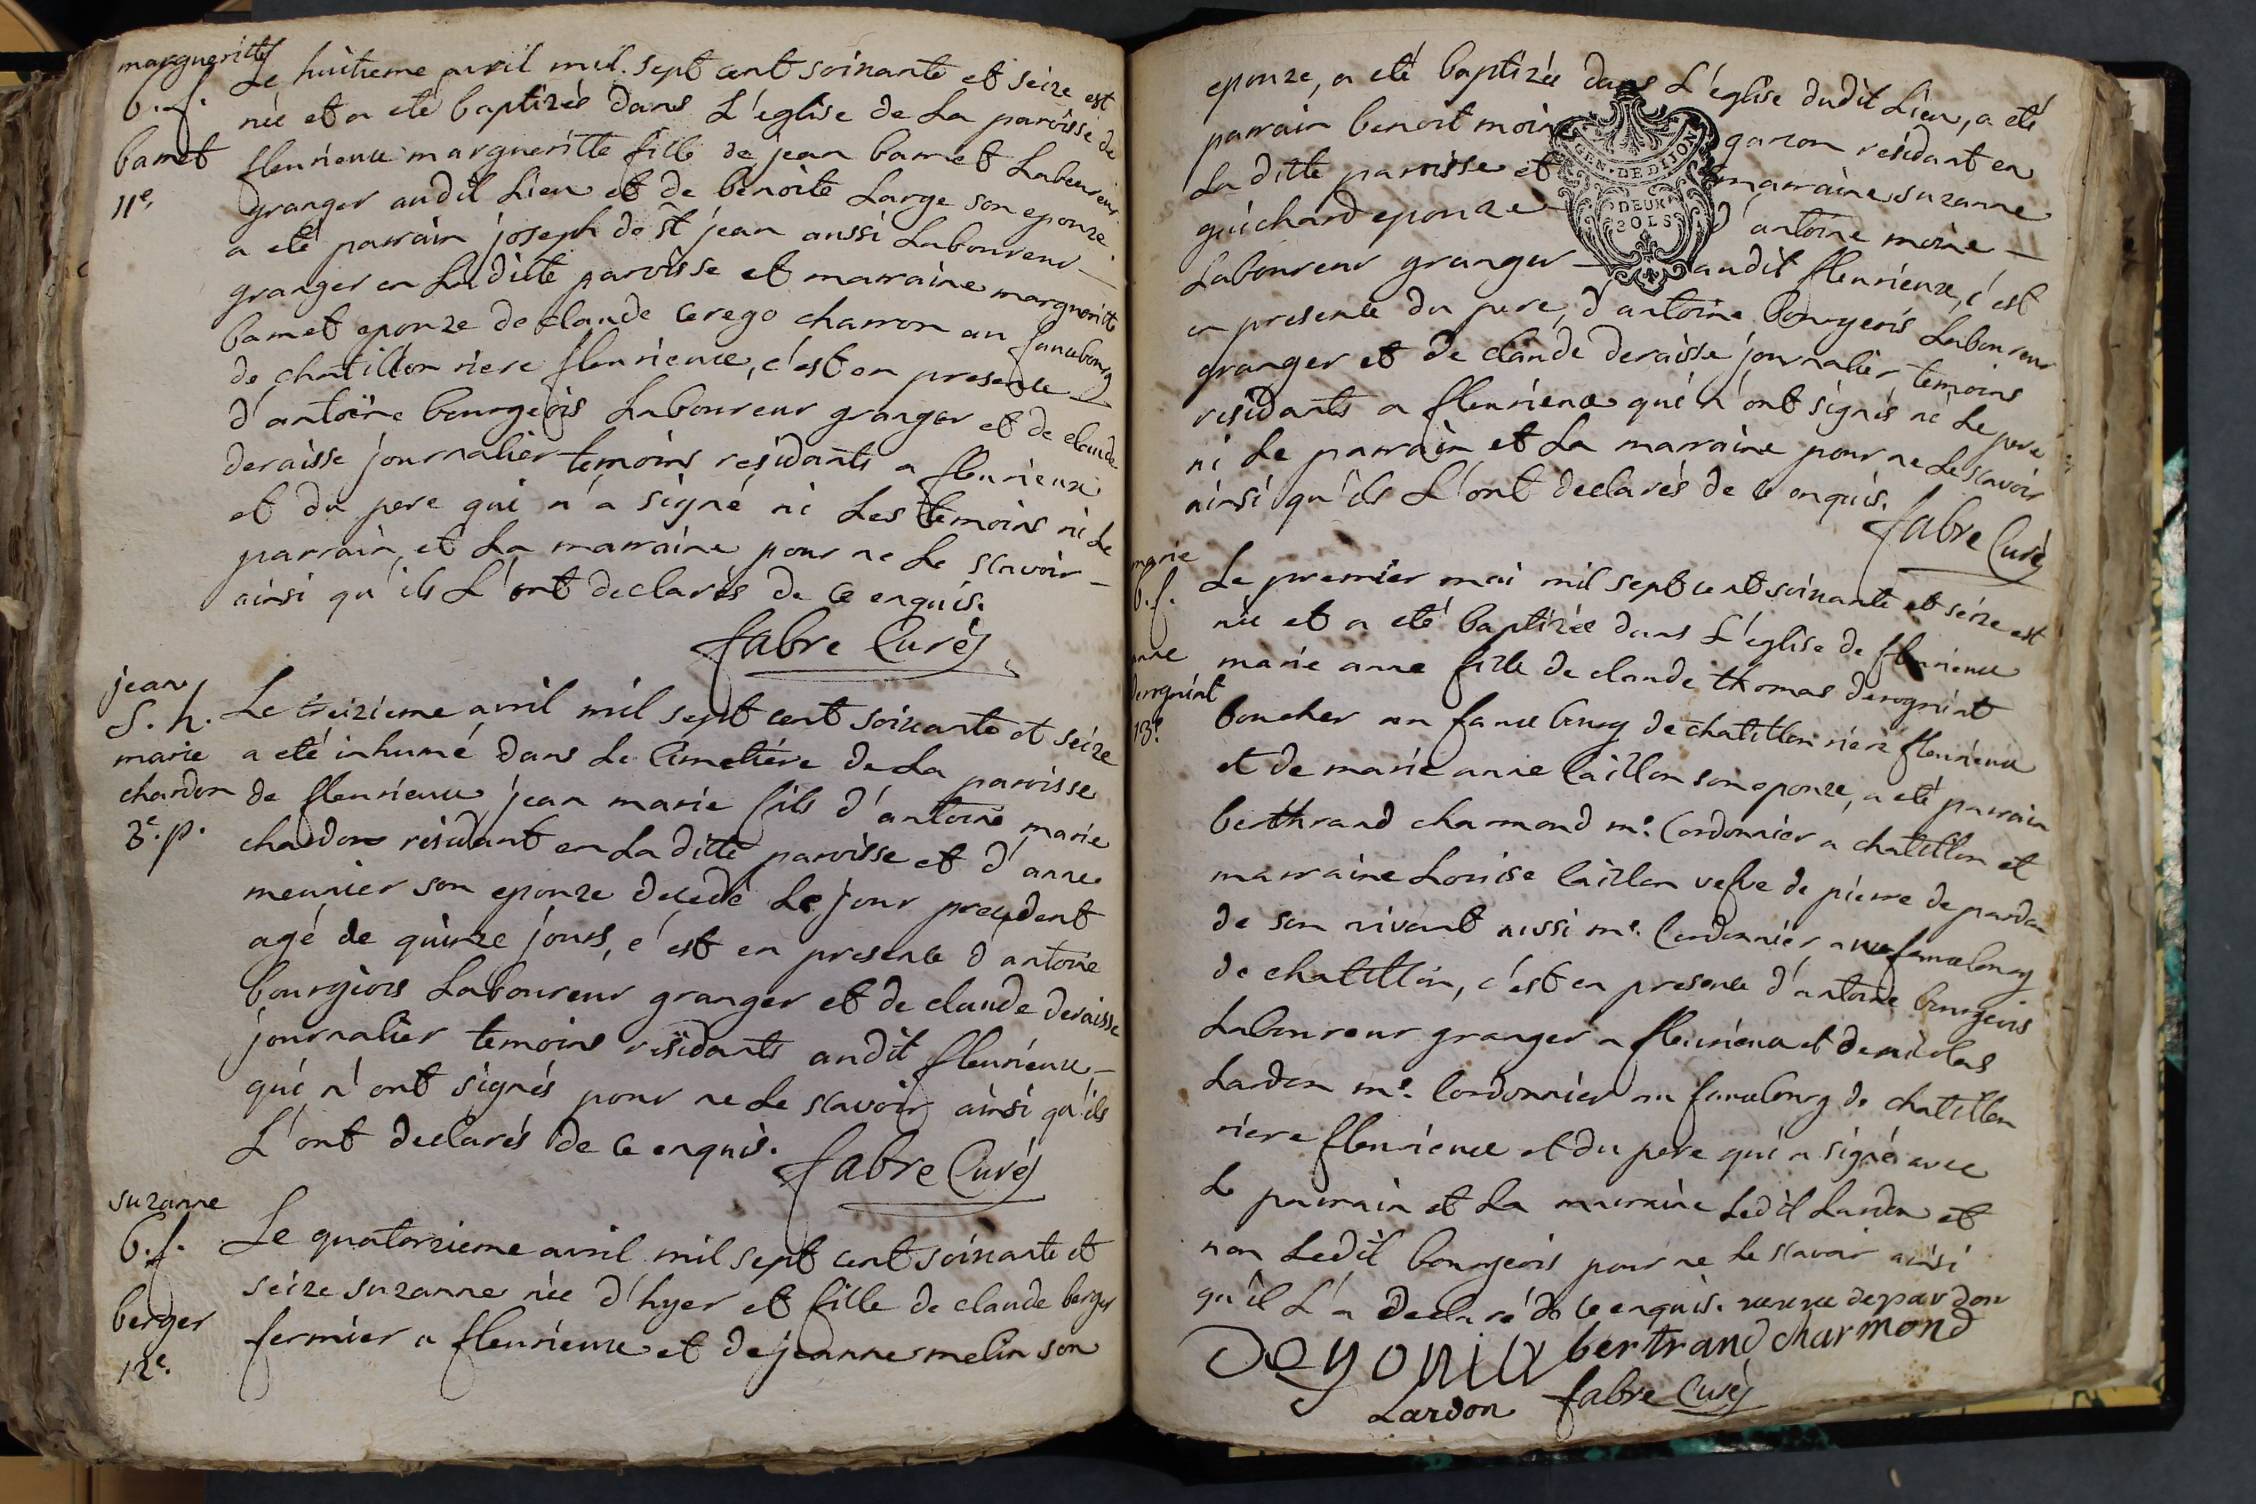 margueritte
b. f.
bamet
11e.
Le huitieme avril mil sept cent soixante et seize est
née et a eté baptizée dans L'eglise de La paroisse de
fleurieux margueritte fille de jean bamet Laboureur
granger audit Lieu et de benoite Large son epouze
a eté parrain joseph de st jean aussi Laboureur
granger en Laditte paroisse et marraine margueritte
bamet epouze de claude cerego charron au fauxbourg
de chatillon riere fleurieux, c'est en presence
d'antoine bourgeois Laboureur granger et de claude
deraisse journalier temoins residants a fleurieux
et du pere qui n'a signé ni Les temoins ni Le
parrain, et La marraine pour ne Le scavoir
ainsi qu'ils L'ont declarés de ce enquis.
fabre Curé
jean
S. h.
marie
chardon
3e. p.
Le treizieme avril mil sept cent soixante et seize
a eté inhumé dans Le Cimetiére de La paroisse
de fleurieux jean marie fils d'antoine marie
chardon residant en La ditte paroisse et d'anne
meunier son epouze decedé Le jour precedent
agé de quinze jours, c'est en presence d'antoine
bourgiois Laboureur granger et de claude deraisse
journalier temoins residants audit fleurieux
qui n'ont signés pour ne Le scavoir ainsi qu'ils
L'ont declarés de ce enquis.
fabre Curé
suzanne
b. f.
berger
12e.
Le quatorzieme avril mil sept cent soixante et
seize suzanne née d'hyer et fille de claude berger
fermier a fleurieux et de jeanne melin son
epouze, a eté baptizée dans L'église dudit Lieu, a eté
parrain benoit moine garcon residant en
La ditte paroisse et marraine suzanne
guichard epouze d'antoine moine
Laboureur granger audit fleurieux, c'est
en presence du pere, d'antoine bourgeois Laboureur
granger et de claude deraisse journalier temoins
residants a fleurieux qui n'ont signés ni Le pere
ni Le parrain et La marraine pour ne Le scavoir
ainsi qu'ils L'ont declarés de ce enquis.
fabre Curé
GEN. DE DIJON
DEUX
SOLS
marie
b. f.
anne
derognint
13e
Le premier mai mil sept cent soixante et seize est
née et a eté baptizée dans L'église de fleurieux
marie anne fille de claude thomas derognint
boucher au fauxbourg de chatillon riere fleurieux
et de marie anne caillon son epouze, a eté parrain
berthrand charmond me. Cordonnier a chatillon et
marraine Louise caillon vefve de pierre de pardon
de son vivant aussi me. Cordonnier au fauxbourg
de chatillon, c'est en presence d'antoine bourgeois
Laboureur granger a fleurieux et de nicolas
Lardon me. Cordonnier au fauxbourg de chatillon
riere fleurieux et du pere qui a signé avec
Le parrain et La marraine Ledit Lardon et
non Ledit bourgeois pour ne Le scavoir ainsi
qu'il L'a declaré de ce enquis. depardon
bertrand charmond
Lardon fabre Curé